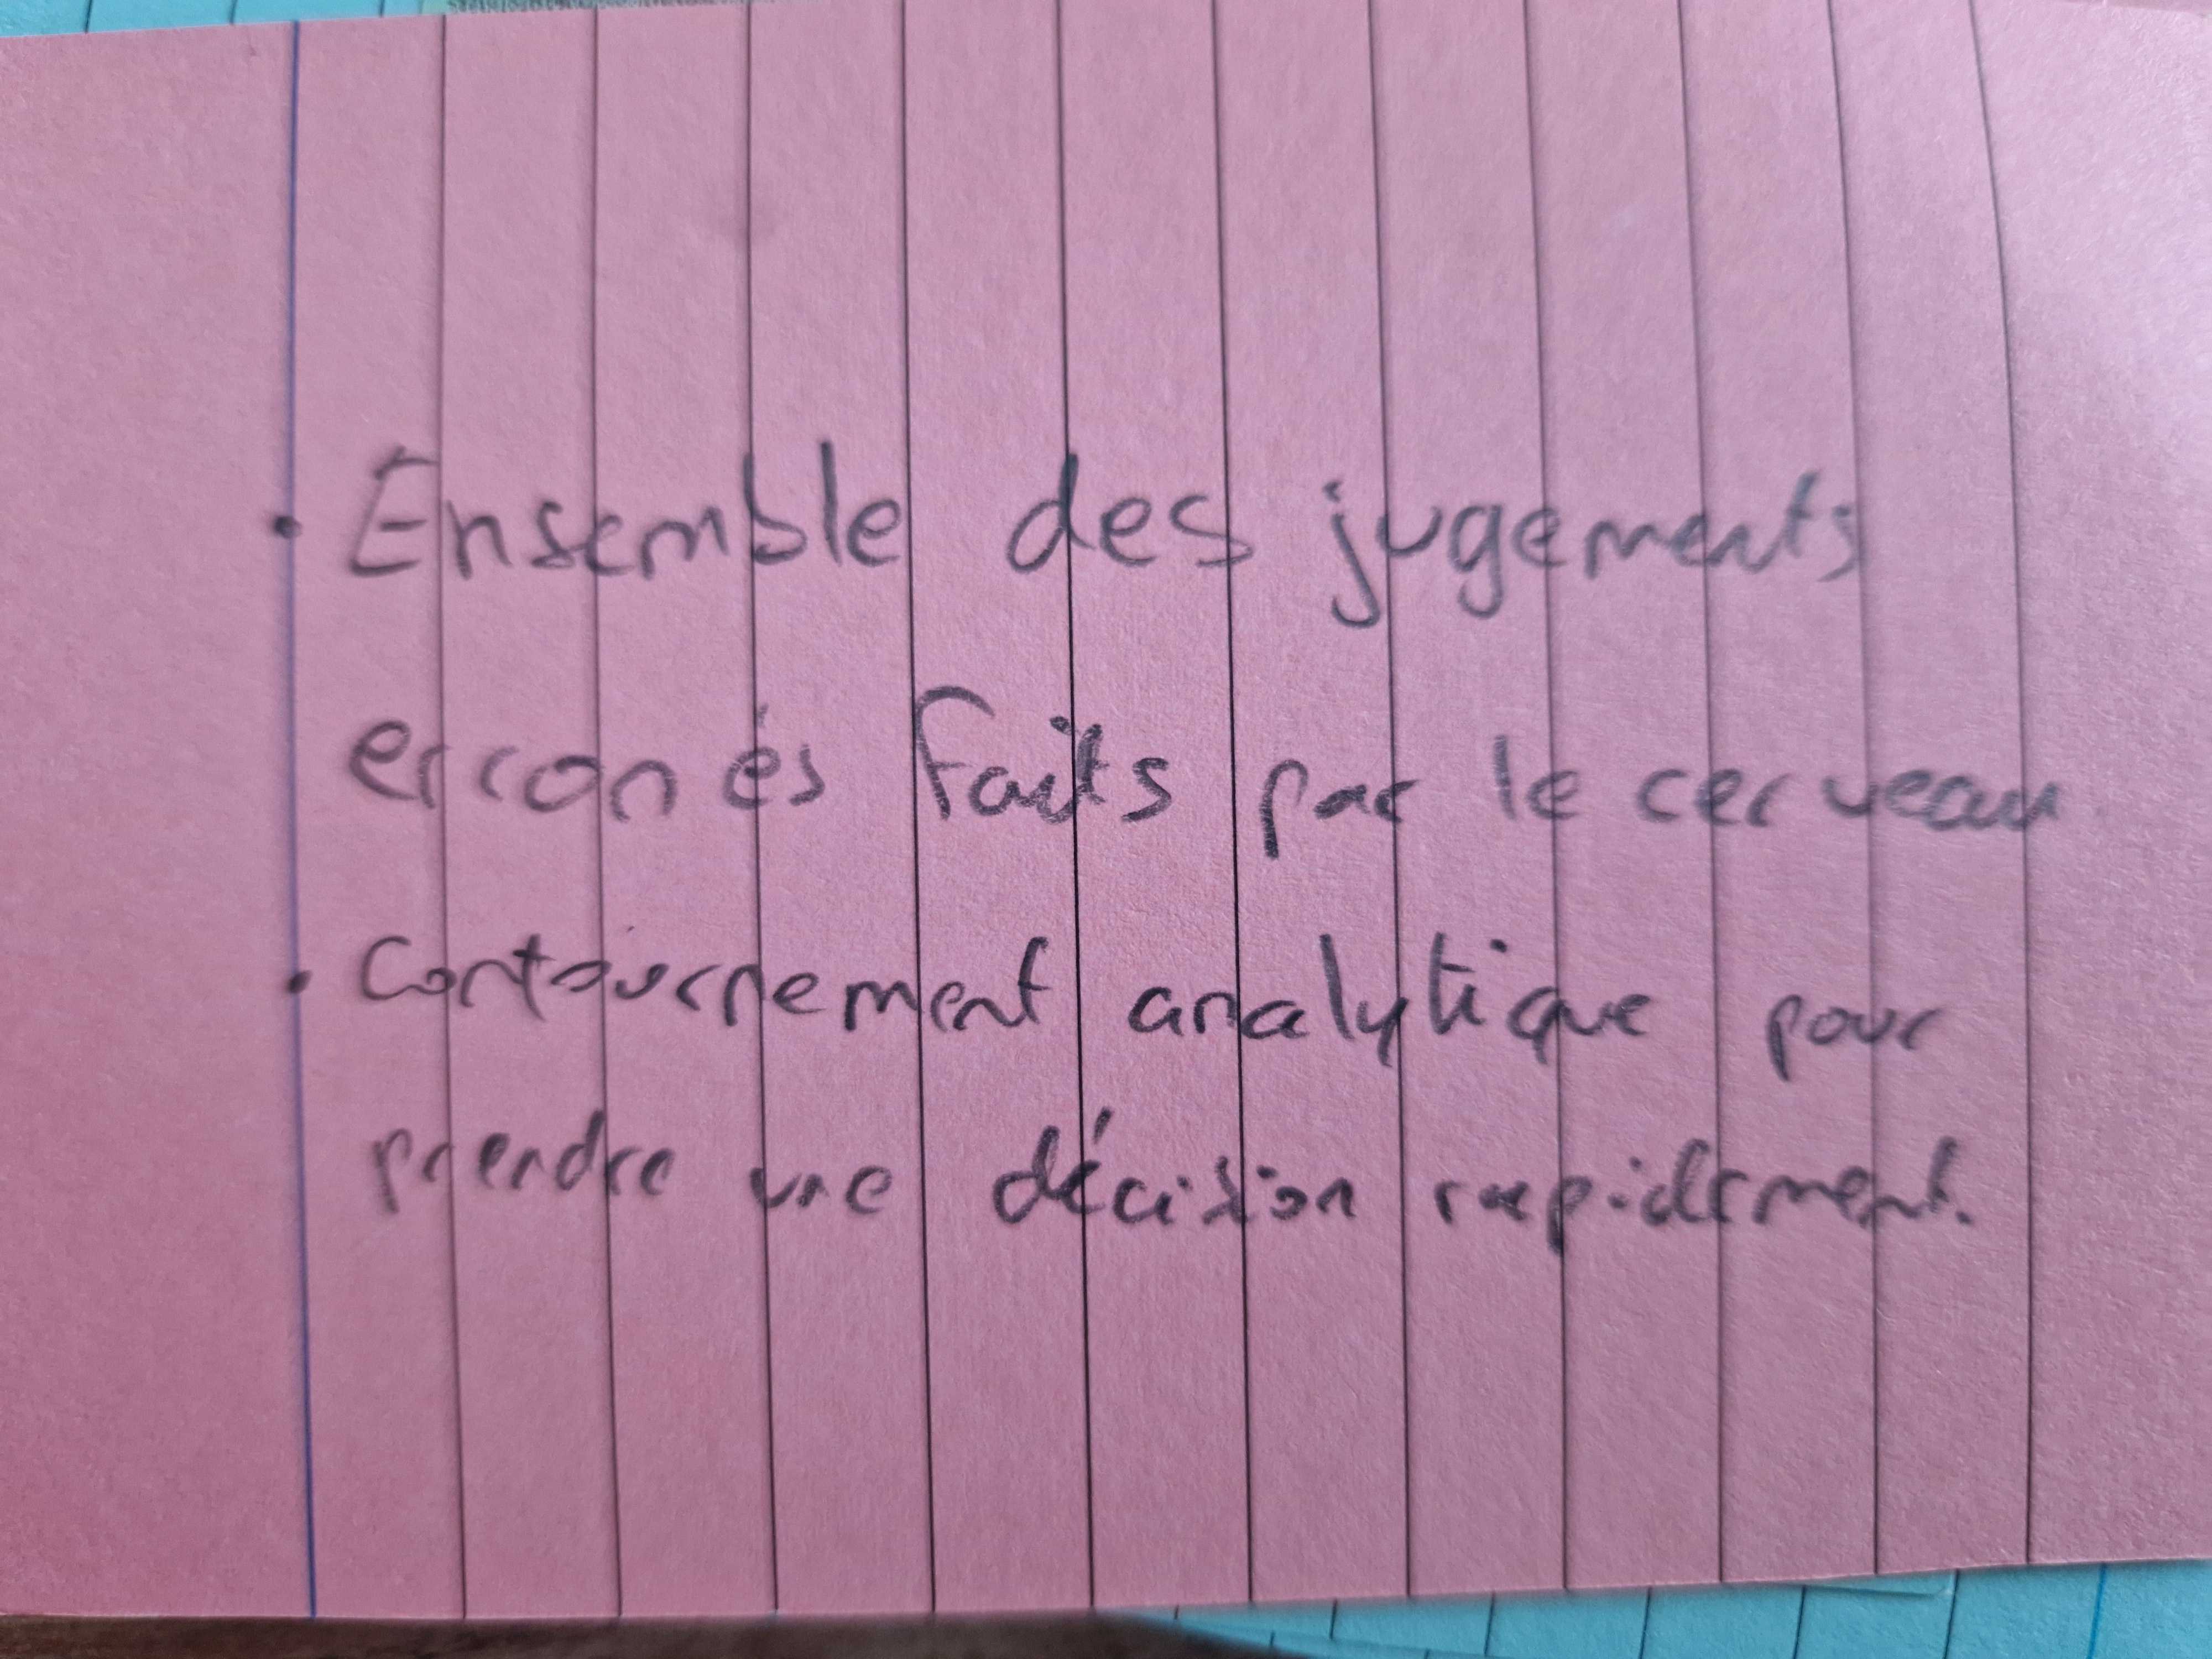 • Ensemble des jugements
erronés faits par le cerveau
• Contournement analytique pour
prendre une décision rapidement.